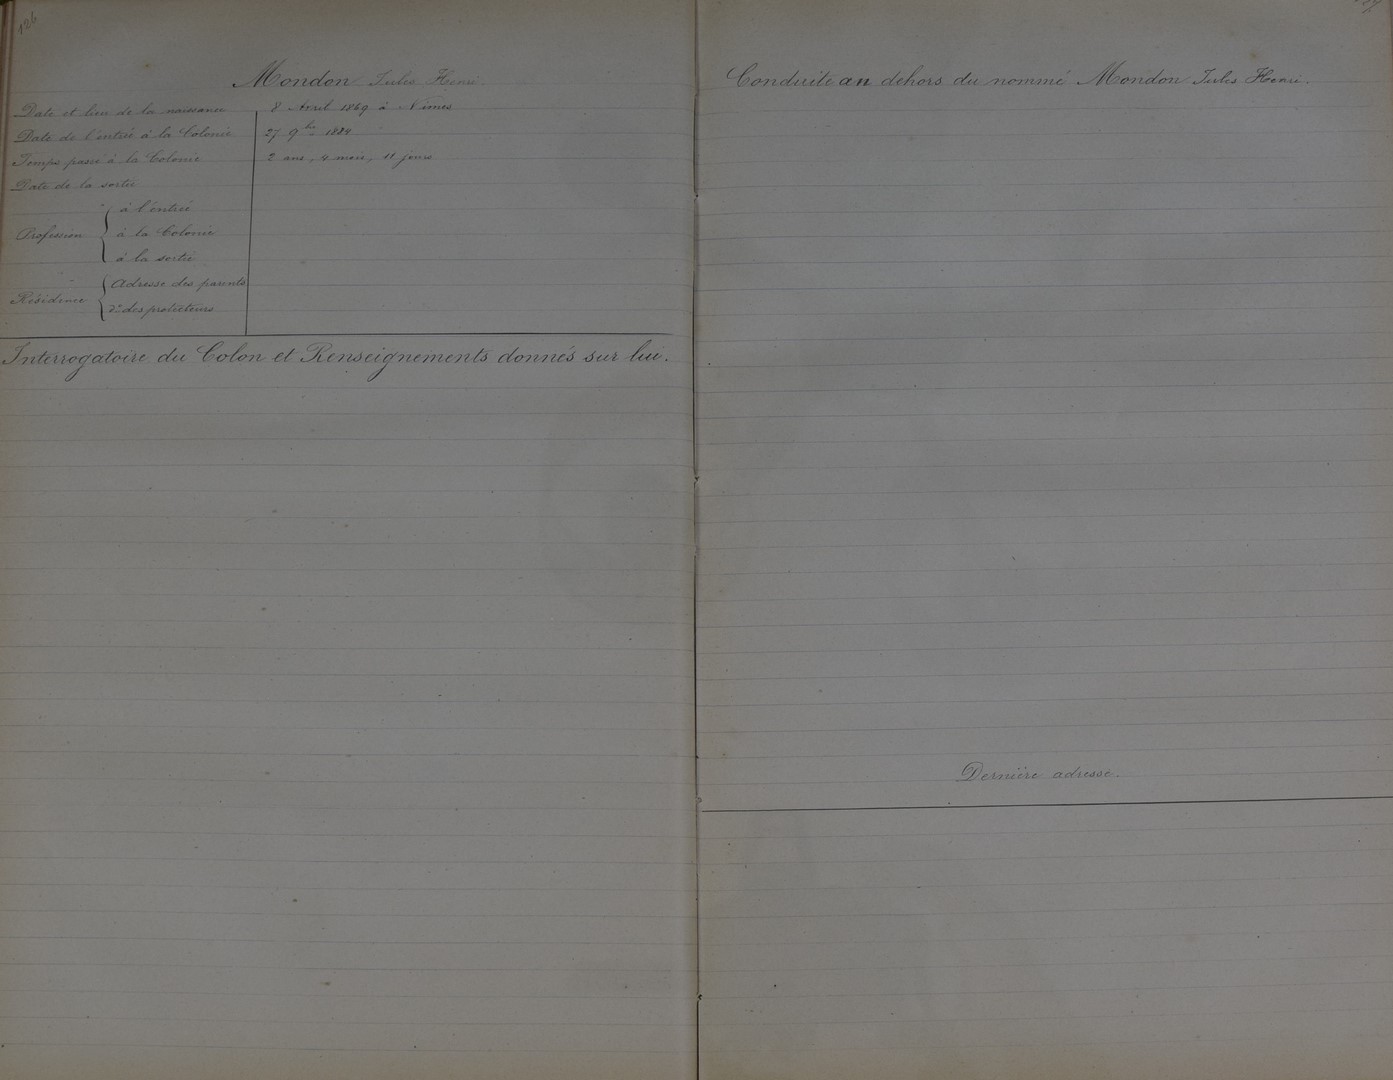 126
Mondon Jules Henri.
Date et lieu de la naissance 8 Avril 1869 à Nimes
Date de l'entrée à la Colonie 27 9bre 1884
Temps passé à la Colonie 2 ans, 4 mois, 11 jours
Date de la sortie
Profession
à l'entrée
à la Colonie
à la sortie
Résidence
Adresse des parents
do des protecteurs
Interrogatoire du Colon et Renseignements donnés sur lui.
Conduite au dehors du nommé Mondon Jules Henri.
Dernière adresse.